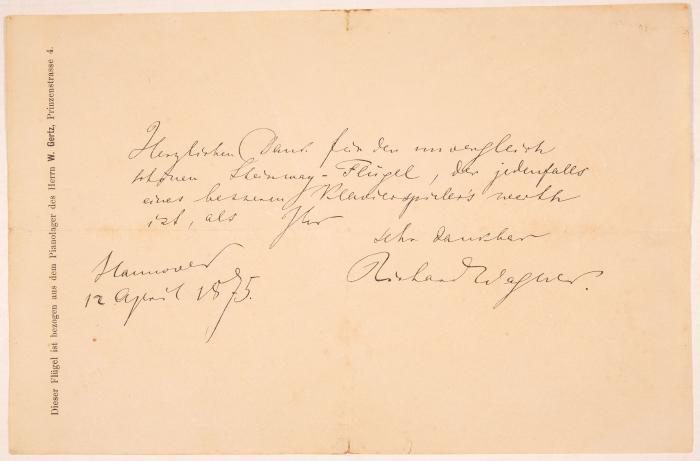 Herzlichen Dank für den unvergleich
schönen Steinway-Flügel, der jedenfalls
eines besseren Klavierspieler's werth
ist, als Ihr
sehr dankbar
Richard Wagner.
Hannover
12 April 1875.
Dieser Flügel ist bezogen aus dem Pianolager des Herrn W. Gertz, Prinzenstrasse 4.